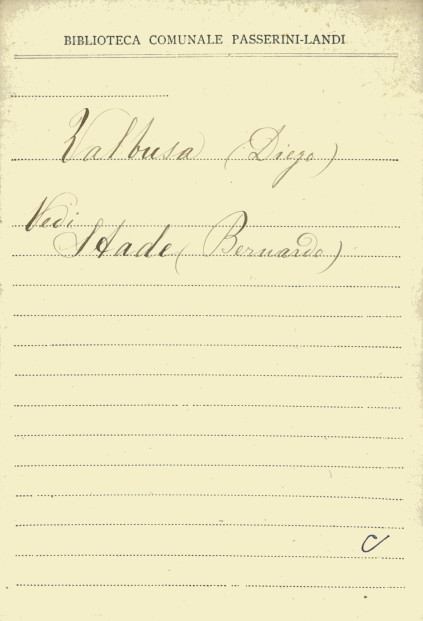 BIBLIOTECA COMUNALE PASSERINI-LANDI
Valbusa (Diego)
Vedi
Stade (Bernardo)
C